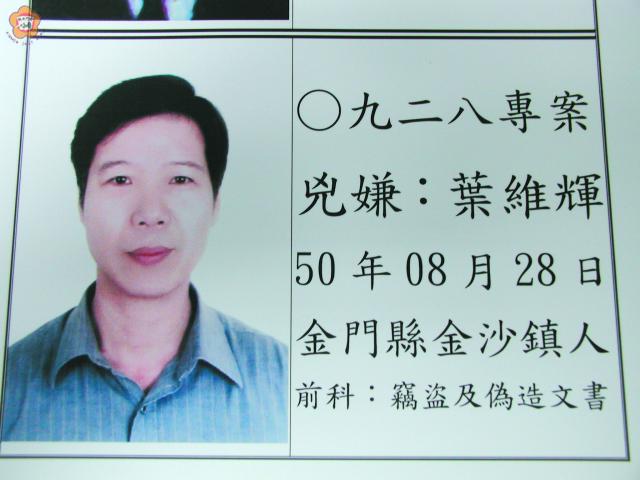 〇九二八專案
兇嫌：葉維輝
50年08月28日
金門縣金沙鎮人
前科：竊盜及偽造文書